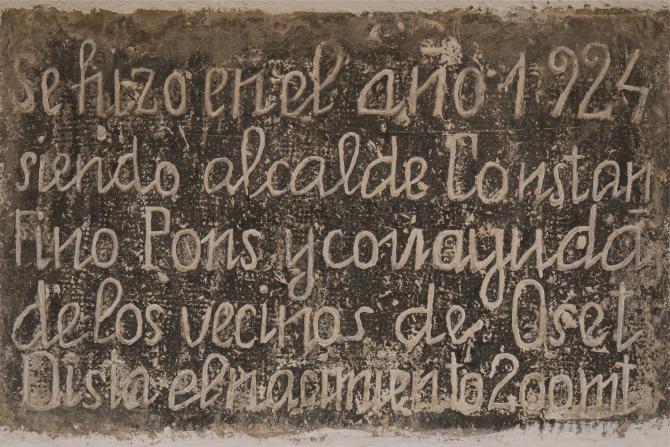 Se hizo en el año 1.924
siendo alcalde Constan
tino Pons y con ayuda
de los vecinos de Oset
Dista el nacimiento 200 mt